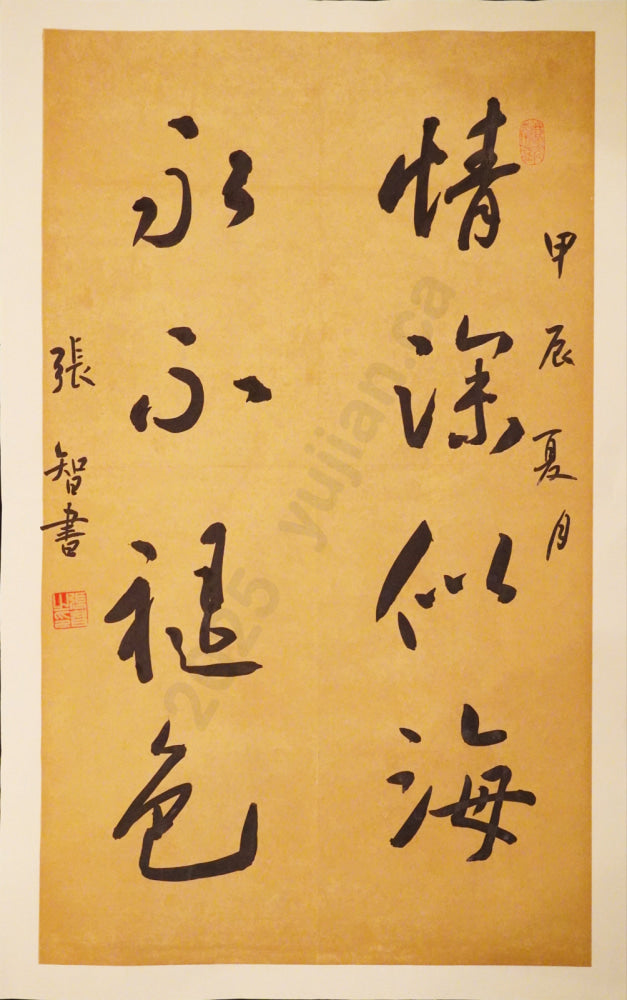 甲辰夏月
情深似海
永不褪色
張智書
2025 yujian.ca